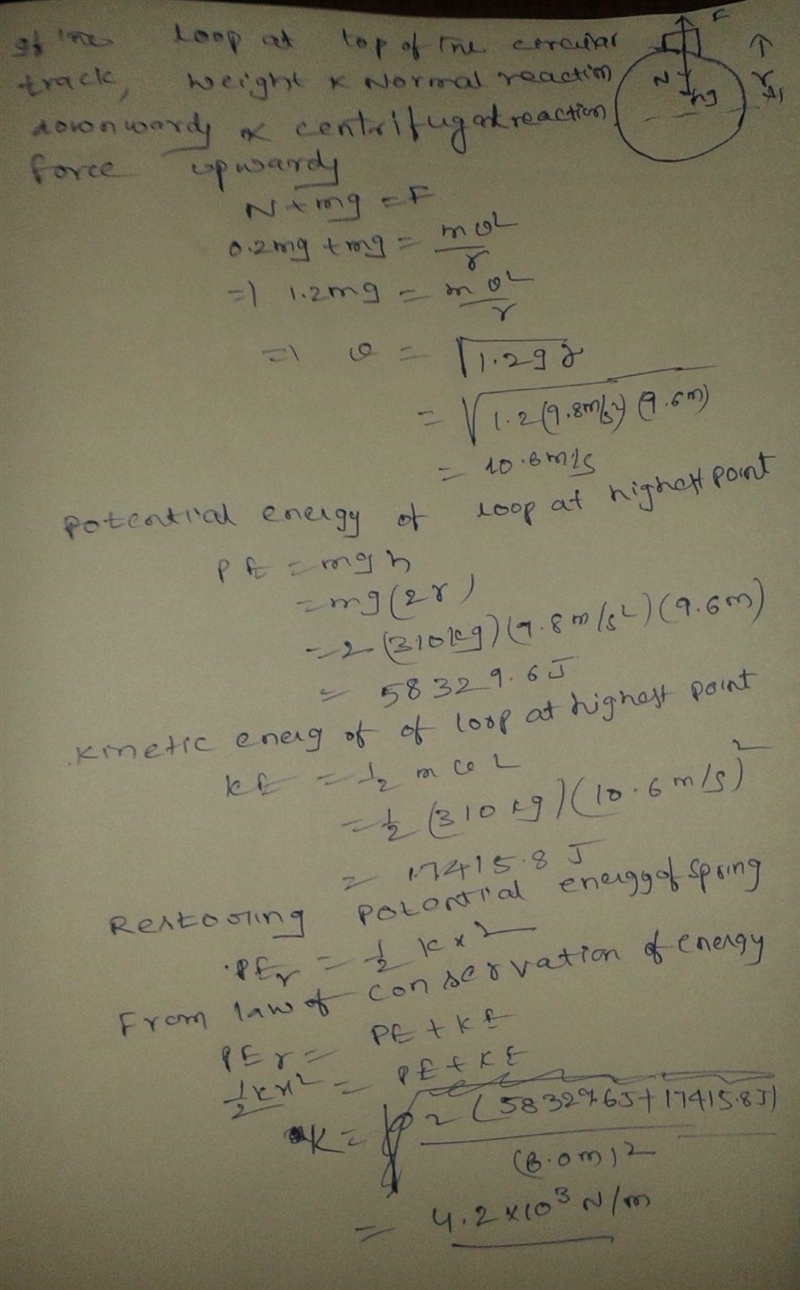 If the loop at top of the circular
track, weight & Normal reaction
downwards & centrifugal reaction
force upwards
F
N
mg
r
N + mg = F
0.2mg + mg = mv²/r
=) 1.2mg = mv²/r
=) v = √1.2gr
= √1.2(9.8m/s²)(9.6m)
= 10.6m/s
potential energy of loop at highest point
PE = mgh
= mg(2r)
= 2(310kg)(9.8m/s²)(9.6m)
= 58329.6J
kinetic energ of of loop at highest point
KE = ½ mv²
= ½ (310kg)(10.6m/s)²
= 17415.8 J
Restoring potential energy of spring
PEr = ½ kx²
From law of conservation of energy
PEr = PE + KE
½kx² = PE + KE
K = 2(58329.6J + 17415.8J)
(6.0m)²
= 4.2×10³ N/m